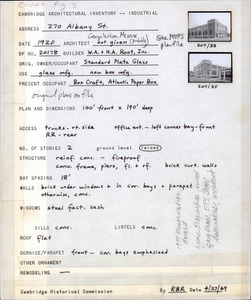 CAMBRIDGE ARCHITECTURAL INVENTORY -- INDUSTRIAL
ADDRESS 270 Albany St.
George Nelson Meserve
DATE 1920 ARCHITECT not given
BP NO. 20178 BUILDER W.A. & H.A. Root, Inc.
ORIG. OWNER/OCCUPANT Standard Plate Glass
USE glass mfg. now box mfg.
PRESENT OCCUPANT Box Craft, Atlantic Paper Box
original plans on file
See MAPS
plan file
207/35
207/35
PLAN AND DIMENSIONS 100' front x 190' deep
ACCESS trucks - rt. side office ent. - left corner bay - front
RR - rear
NO. OF STORIES 2 ground level raised
STRUCTURE reinf. conc. - fireproof
conc. frame, piers, fl. + rf. brick curt. walls
BAY SPACING 18'
WALLS brick under windows + in cor. bays + parapet
otherwise, conc.
WINDOWS steel fact. sash
SILLS conc. LINTELS conc.
ROOF flat
CORNICE/PARAPET front - cor. bays emphasized
OTHER ORNAMENT
REMODELING —
Cambridge Historical Commission By RBR Date 4/23/69